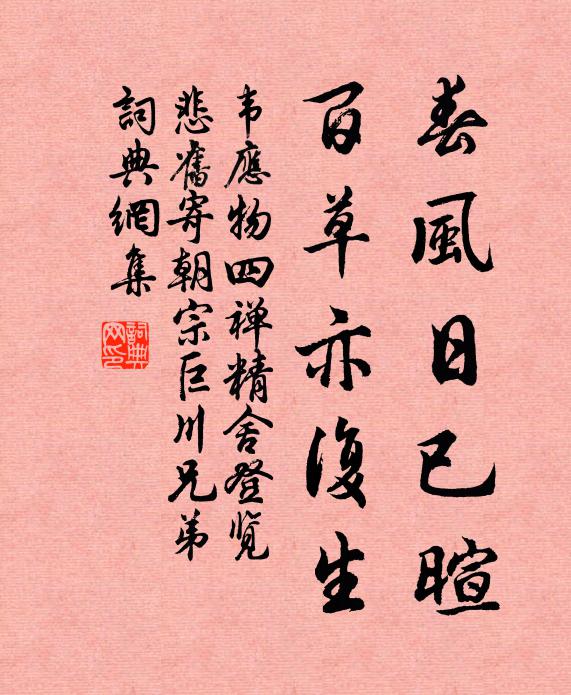 春風日已暄
百草亦復生
韦應物四禅精舍登览
悲舊寄朝宗巨川兄弟
詞典網集
詞典网印